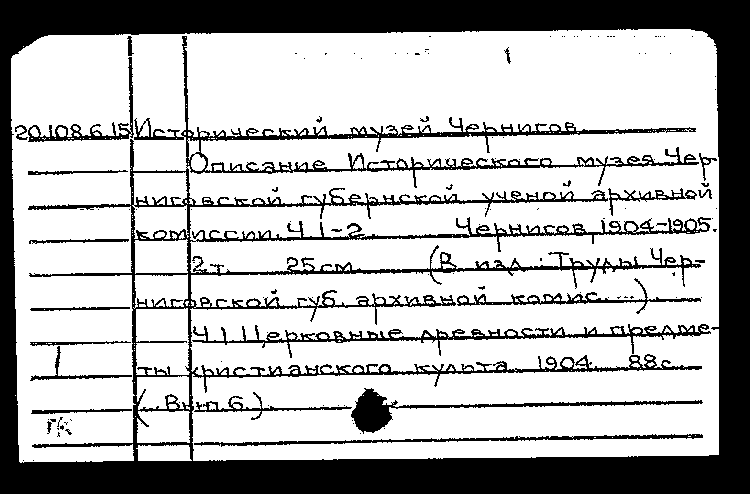 1
20.108.6.15 Исторический музей Чернигов.
Описание Исторического музея Чер-
ниговской губернской ученой архивной
комиссии. Ч 1-2. Чернигов, 1904-1905.
2т. 25см. (В изд.: Труды Чер-
ниговской губ. архивной комис. ...)
Ч.1 Церковные древности и предме-
1 ты христианского культа 1904. 88с.
(... Вып.6.)
ГК